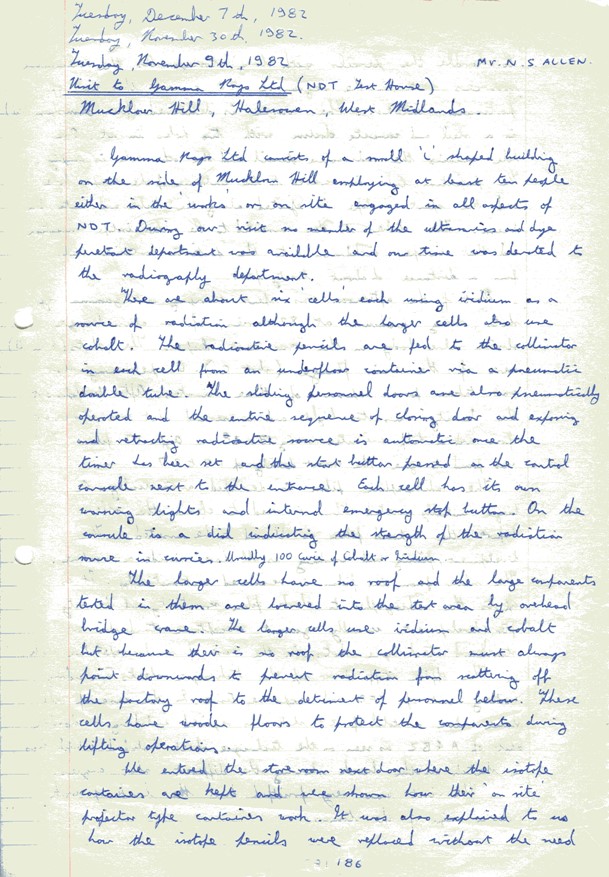 Tuesday, December 7th, 1982
Tuesday, November 30th, 1982.
Tuesday, November 9th, 1982 Mr. N. S. ALLEN.
Visit to Gamma Rays Ltd (NDT Test House)
Mucklow Hill, Halesowen, West Midlands.
Gamma Rays Ltd consists of a small 'L' shaped building
on the side of Mucklow Hill employing at least ten people
either in the 'works' or on site engaged in all aspects of
NDT. During our visit no member of the ultrasonics and dye
penetrant department was available and our time was devoted to
the radiography department.
There are about six 'cells' each using iridium as a
source of radiation although the larger cells also use
cobalt. The radioactive pencils are fed to the collimator
in each cell from an underfloor container via a pneumatic
double tube. The sliding personnel doors are also pneumatically
operated and the entire sequence of closing door and exposing
and retracting radioactive source is automatic once the
timer has been set and the start button pressed on the control
console next to the entrance. Each cell has its own
warning lights and internal emergency stop button. On the
console is a dial indicating the strength of the radiation
source in curries. Usually 100 Curie of Cobalt or Iridium.
The larger cells have no roof and the large components
tested in them are lowered into the test area by overhead
bridge crane. The larger cells use iridium and cobalt
but because their is no roof the collimator must always
point downwards to prevent radiation from scattering off
the factory roof to the detriment of personnel below. These
cells have wooden floors to protect the components during
lifting operations.
We entered the store room next door where the isotope
containers are kept and were shown how their 'on site'
projector type containers work. It was also explained to us
how the isotope pencils were replaced without the need
186